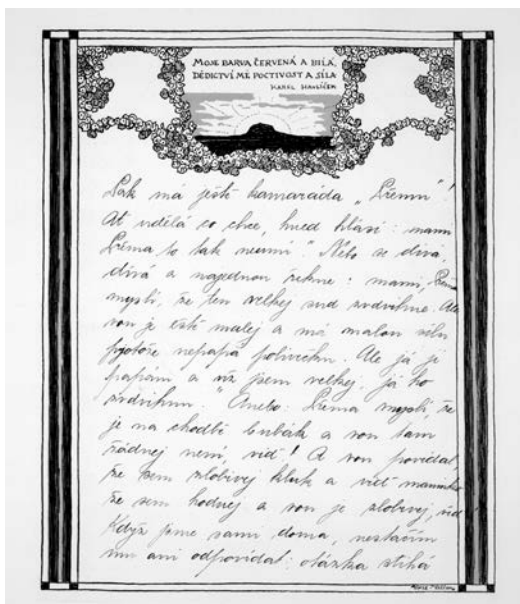 MOJE BARVA ČERVENÁ A BÍLÁ,
DĚDICTVÍ MÉ POCTIVOST A SÍLA
KAREL HAVLÍČEK
Pak má ještě kamaráda „Přému"!
Ať udělá co chce, hned hlásí: mami
Přéma to tak neumí." Nebo se dívá,
dívá a najednou řekne: mami, Přéma
myslí, že ten velkej sud zvdvihne. Ale
von je eště malej a má malou sílu
protože nepapá polívečku. Ale já ji
papám a už jsem velkej, já ho
zvdvihnu." Anebo: Přéma myslí, že
je na chodbě bubák a von tam
žádnej není, viď! A von povídal,
že sem zlobivej kluk a viď maminko
že sem hodnej a von je zlobivej, viď
Když jsme sami doma, nestačím
mu ani odpovídat: otázka stíhá